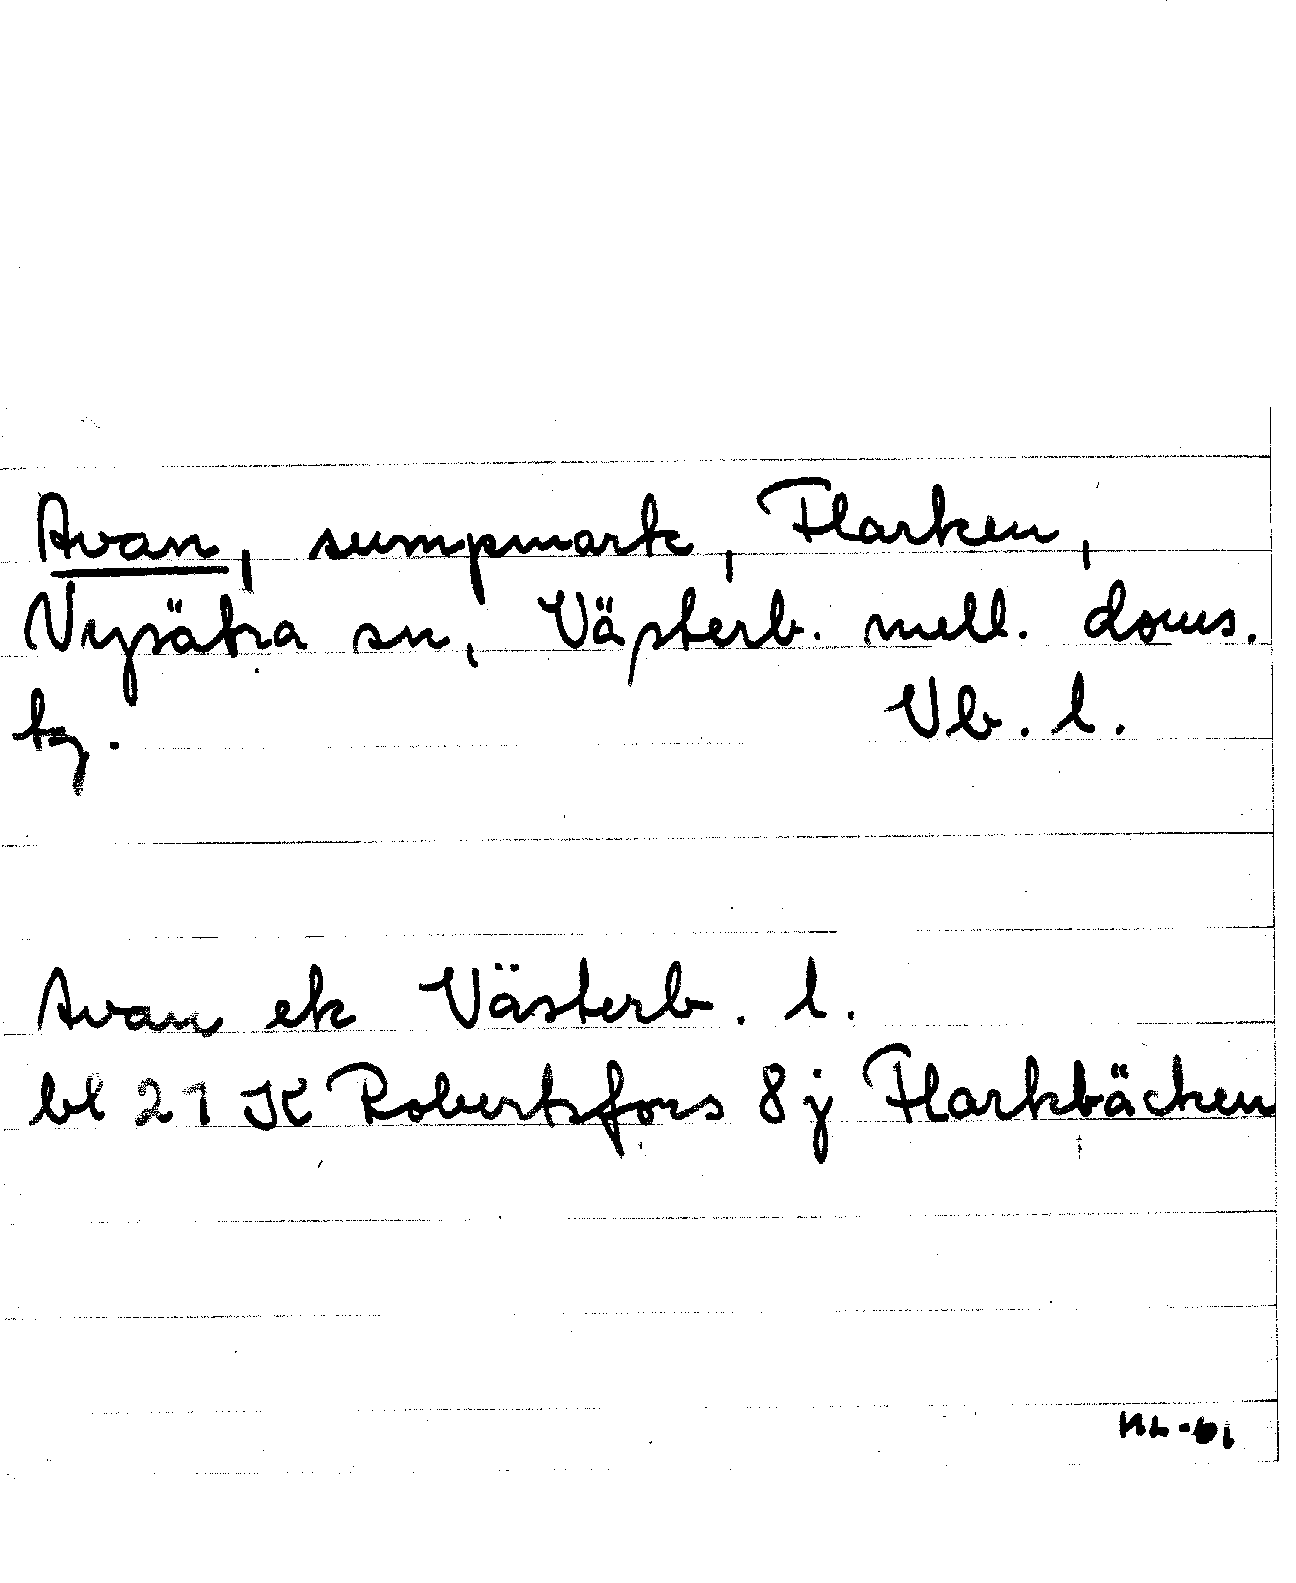 Avan, sumpmark, Flarken,
Nysätra sn, Västerb. mell. doms.
tg. Vb. l.
Avan ek Västerb. l.
bl 21 K Robertsfors 8 j Flarkbäcken